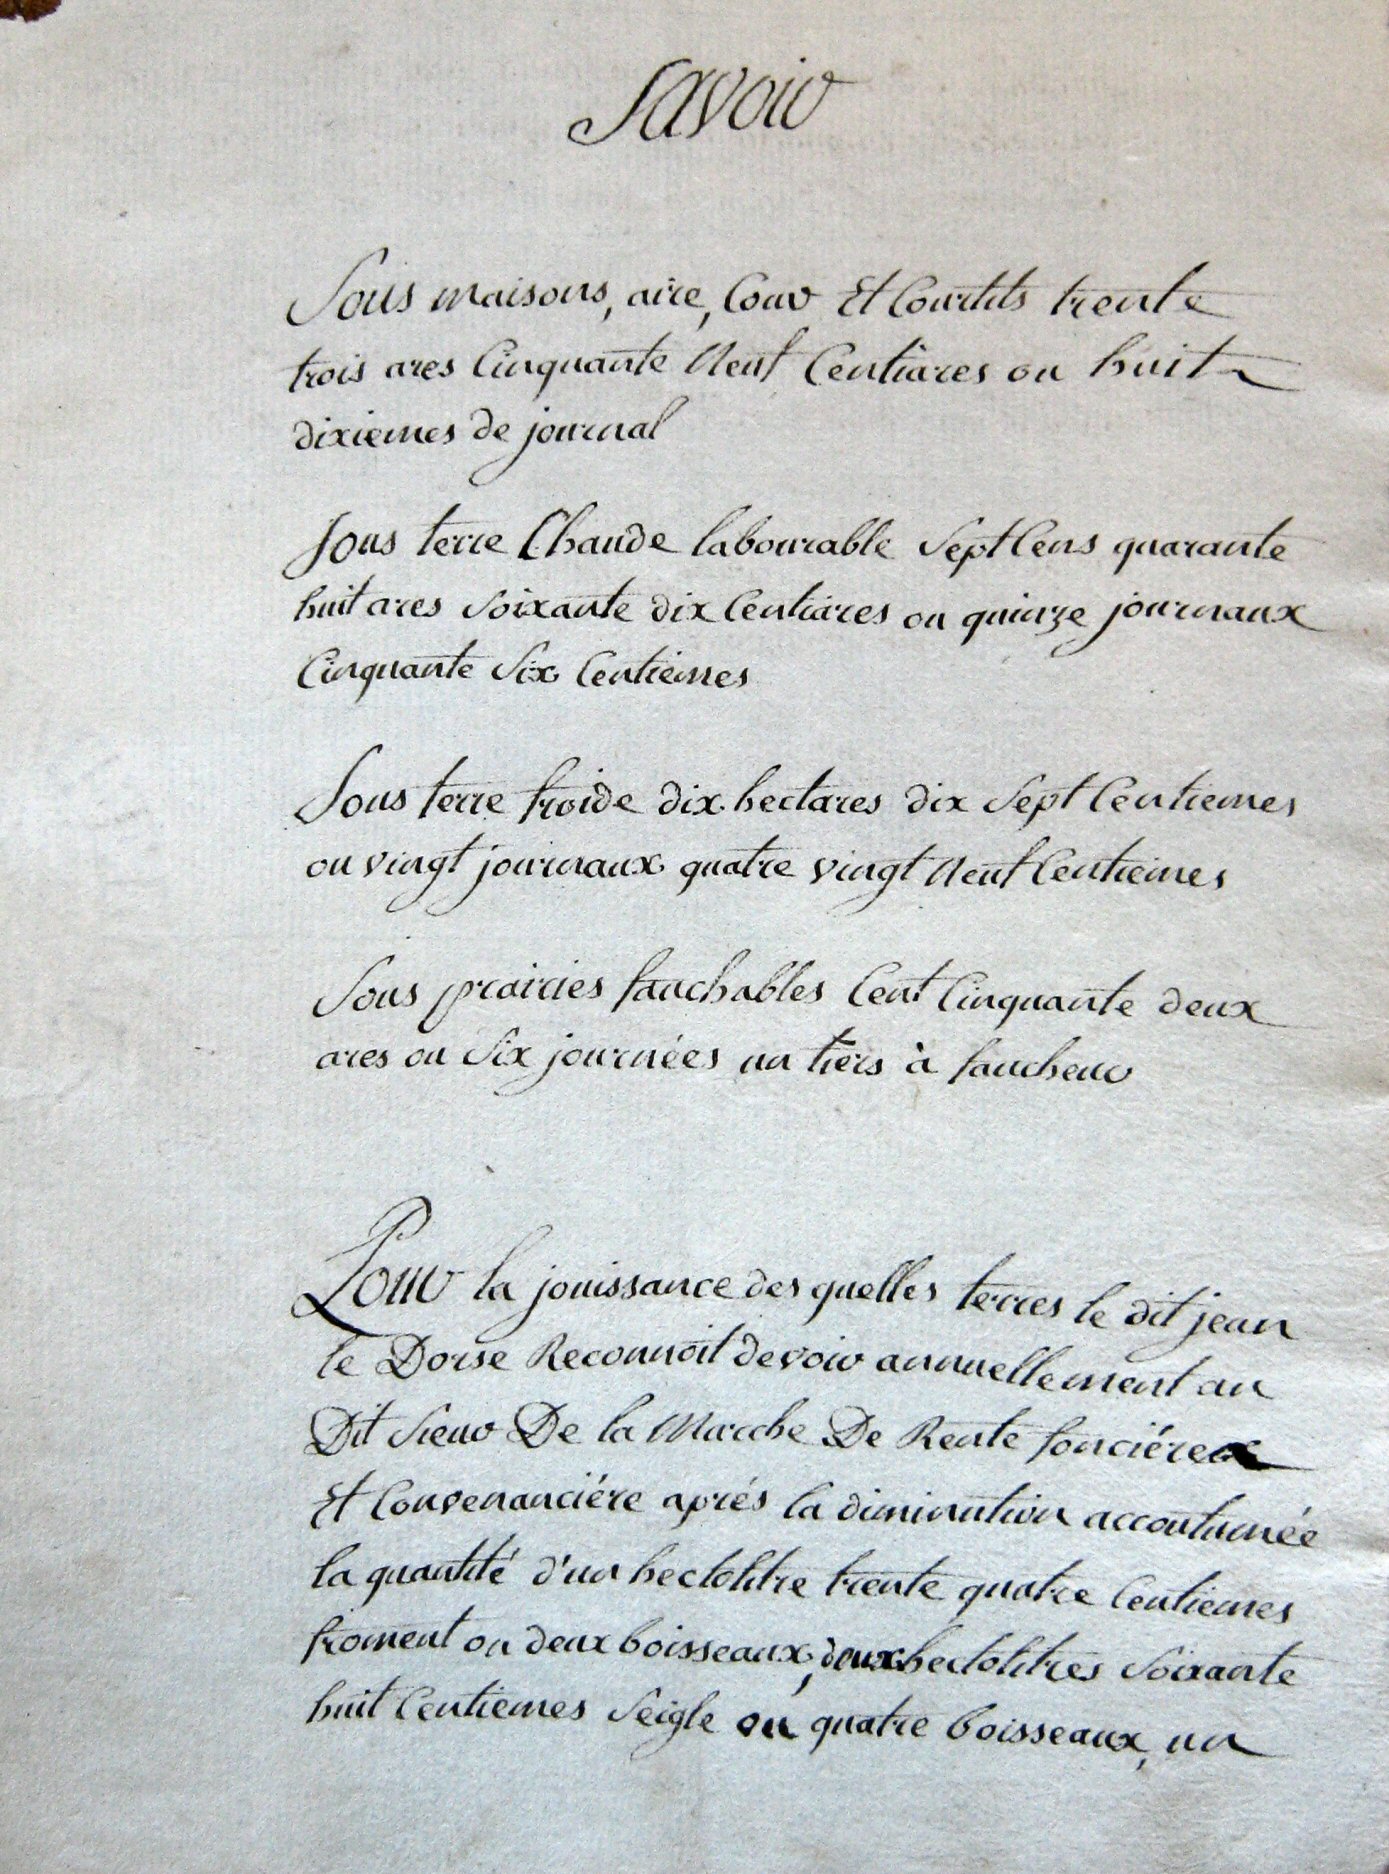 Savoir
Sous maisons, aire, Cour Et Courtils trente
trois ares Cinquante Neuf Centiares ou huit
dixiemes de journal
Sous terre Chaude labourable Sept Cens quarante
huit ares Soixante dix Centiares ou quinze journaux
Cinquante Six Centiemes
Sous terre froide dix hectares dix Sept Centiemes
ou vingt journaux quatre vingt Neuf Centiemes
Sous prairies fauchables Cent Cinquante deux
ares ou Six journées un tiers à faucheur
Pour la jouissance des quelles terres le dit jean
le Dorse Reconnoit devoir annuellement au
Dit Sieur De la Marche De Rente fonciére
Et Convenanciére aprés la diminution accoutumée
la quantité d'un hectolitre trente quatre Centiemes
froment ou deux boisseaux, deux hectolitres Soixante
huit Centiemes Seigle ou quatre boisseaux, un